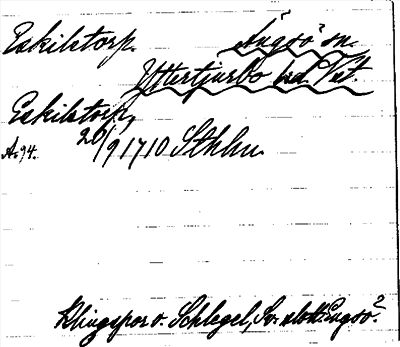 Eskilstorp. Ängsö sn.
Yttertjurbo hd. Vst.
Eskilstorp,
A. 94. 26/9 1710 Sthlm.
Klingspor o. Schlegel, Sv. slott. Engsö?